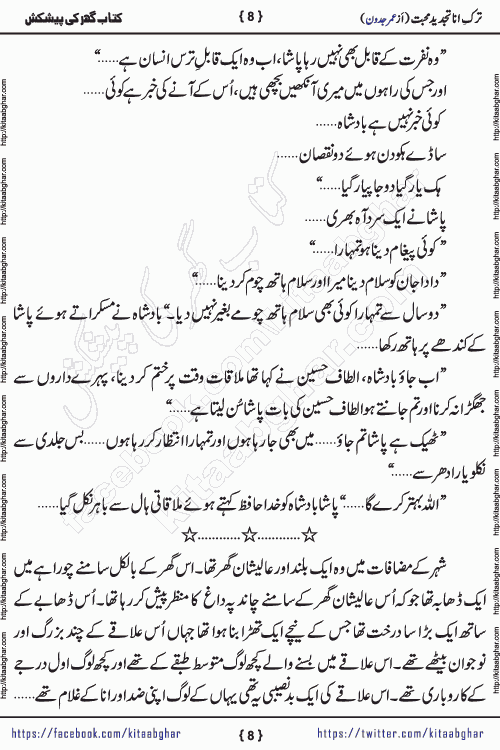 ترکِ انا تجدیدِ محبت (از عمر جدون)
{ 8 }
کتاب گھر کی پیشکش
”وہ نفرت کے قابل بھی نہیں رہا پاشا، اب وہ ایک قابلِ ترس انسان ہے......“
اور جس کی راہوں میں میری آنکھیں بچھی ہیں، اُس کے آنے کی خبر ہے کوئی......
کوئی خبر نہیں ہے بادشاہ......
ساڈے ہکو دن ہوئے دو نقصان......
ہک یار گیا دوجا پیار گیا......“
پاشا نے ایک سرد آہ بھری......
”کوئی پیغام دینا ہو تمہارا......“
”دادا جان کو سلام دینا میرا اور سلام ہاتھ چوم کر دینا......“
”دو سال سے تمہارا کوئی بھی سلام ہاتھ چومے بغیر نہیں دیا۔“ بادشاہ نے مسکراتے ہوئے پاشا
کے کندھے پر ہاتھ رکھا......
”اب جاؤ بادشاہ، الطاف حسین نے کہا تھا ملاقات وقت پر ختم کر دینا، پہرے داروں سے
جھگڑا نہ کرنا اور تم جانتے ہو الطاف حسین کی بات پاشا سُن لیتا ہے......“
”ٹھیک ہے پاشا تم جاؤ...... میں بھی جا رہا ہوں اور تمہارا انتظار کر رہا ہوں...... بس جلدی سے
نکلو یار ادھر سے......“
”اللہ بہتر کرے گا......“ پاشا بادشاہ کو خدا حافظ کہتے ہوئے ملاقاتی ہال سے باہر نکل گیا......
☆............☆............☆
شہر کے مضافات میں وہ ایک بلند اور عالیشان گھر تھا۔ اس گھر کے بالکل سامنے چوراہے میں
ایک ڈھابہ تھا جو کہ اُس عالیشان گھر کے سامنے چاند پہ داغ کا منظر پیش کر رہا تھا۔ اُس ڈھابے کے
ساتھ ایک بڑا سا درخت تھا جس کے نیچے ایک تھڑا بنا ہوا تھا جہاں اُس علاقے کے چند بزرگ اور
نوجوان بیٹھے تھے۔ اس علاقے میں بسنے والے کچھ لوگ متوسط طبقے کے تھے اور کچھ لوگ اول درجے
کے کاروباری تھے۔ اس علاقے کی ایک بدنصیبی یہ تھی یہاں کے لوگ اپنی ضد اور انا کے غلام تھے......
https://facebook.com/kitaabghar
{ 8 }
https://twitter.com/kitaabghar
http://kitaabghar.com
کتاب گھر کی پیشکش
kitaabghar.com
facebook.com/kitaabghar